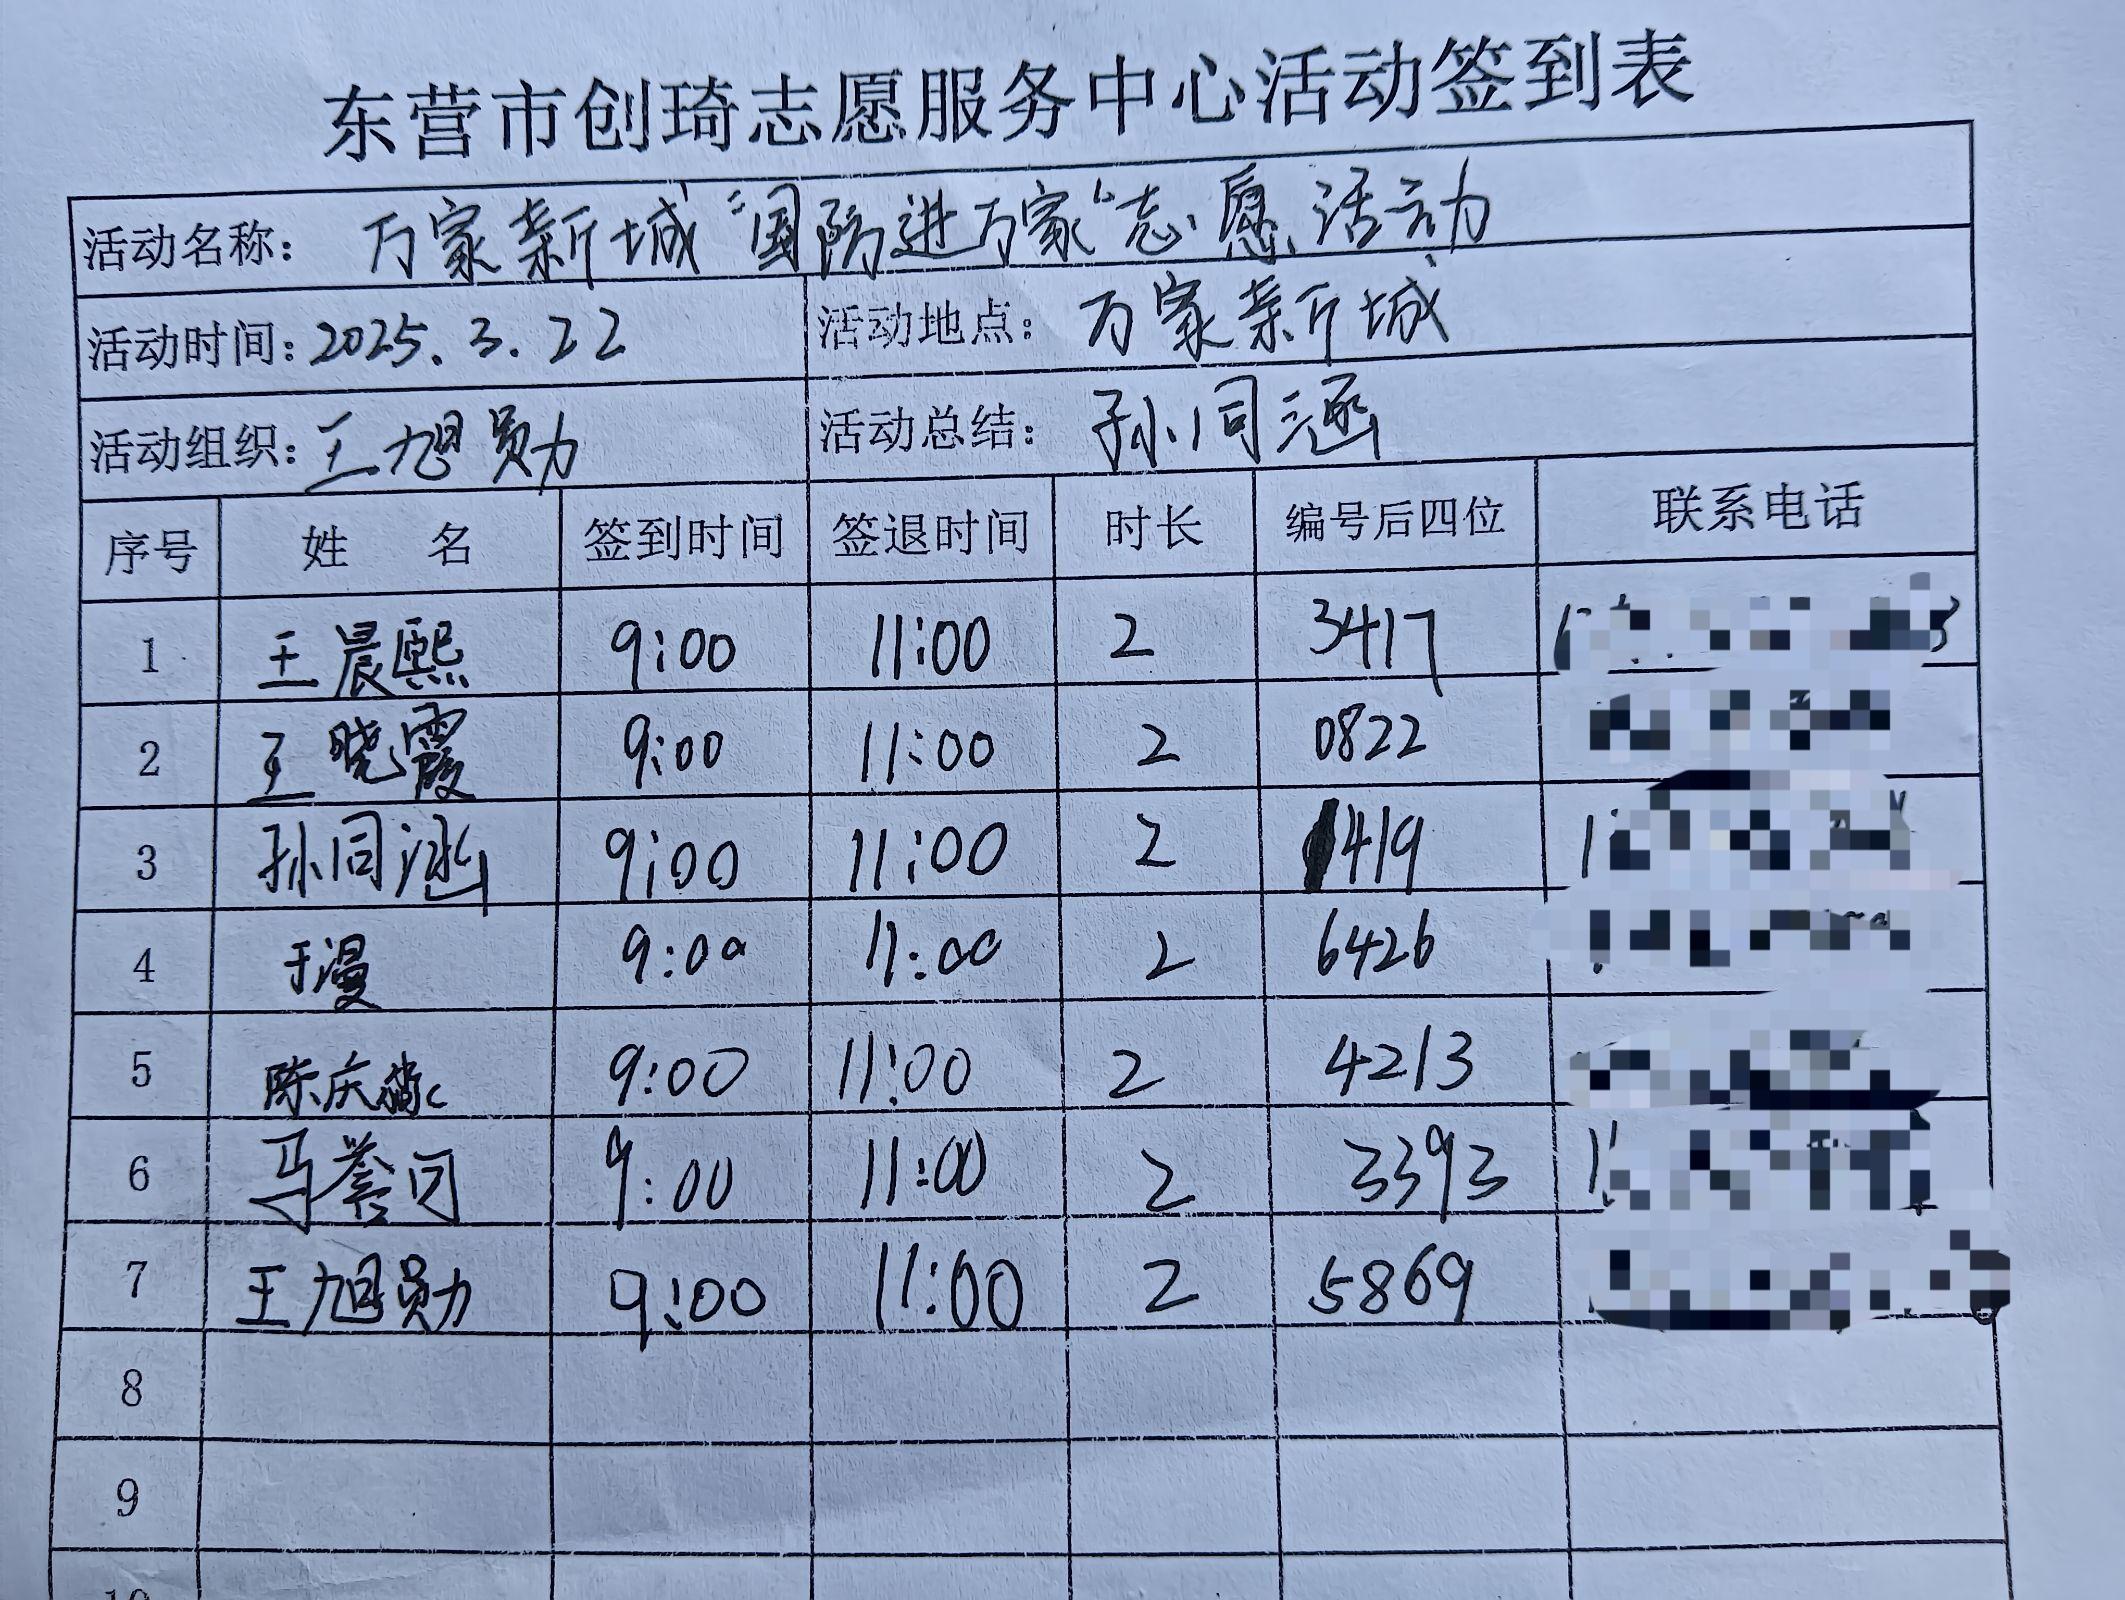 东营市创琦志愿服务中心活动签到表
活动名称： 万家新城“国防进万家”志愿活动
活动时间：2025.3.22 活动地点： 万家新城
活动组织：王旭勋 活动总结： 孙同涵
序号 姓 名 签到时间 签退时间 时长 编号后四位 联系电话
1 王晨熙 9:00 11:00 2 3417
2 王晓霞 9:00 11:00 2 0822
3 孙同涵 9:00 11:00 2 1419
4 于漫 9:00 11:00 2 6426
5 陈庆 9:00 11:00 2 4213
6 马誉可 9:00 11:00 2 3393
7 王旭勋 9:00 11:00 2 5869
8
9
10